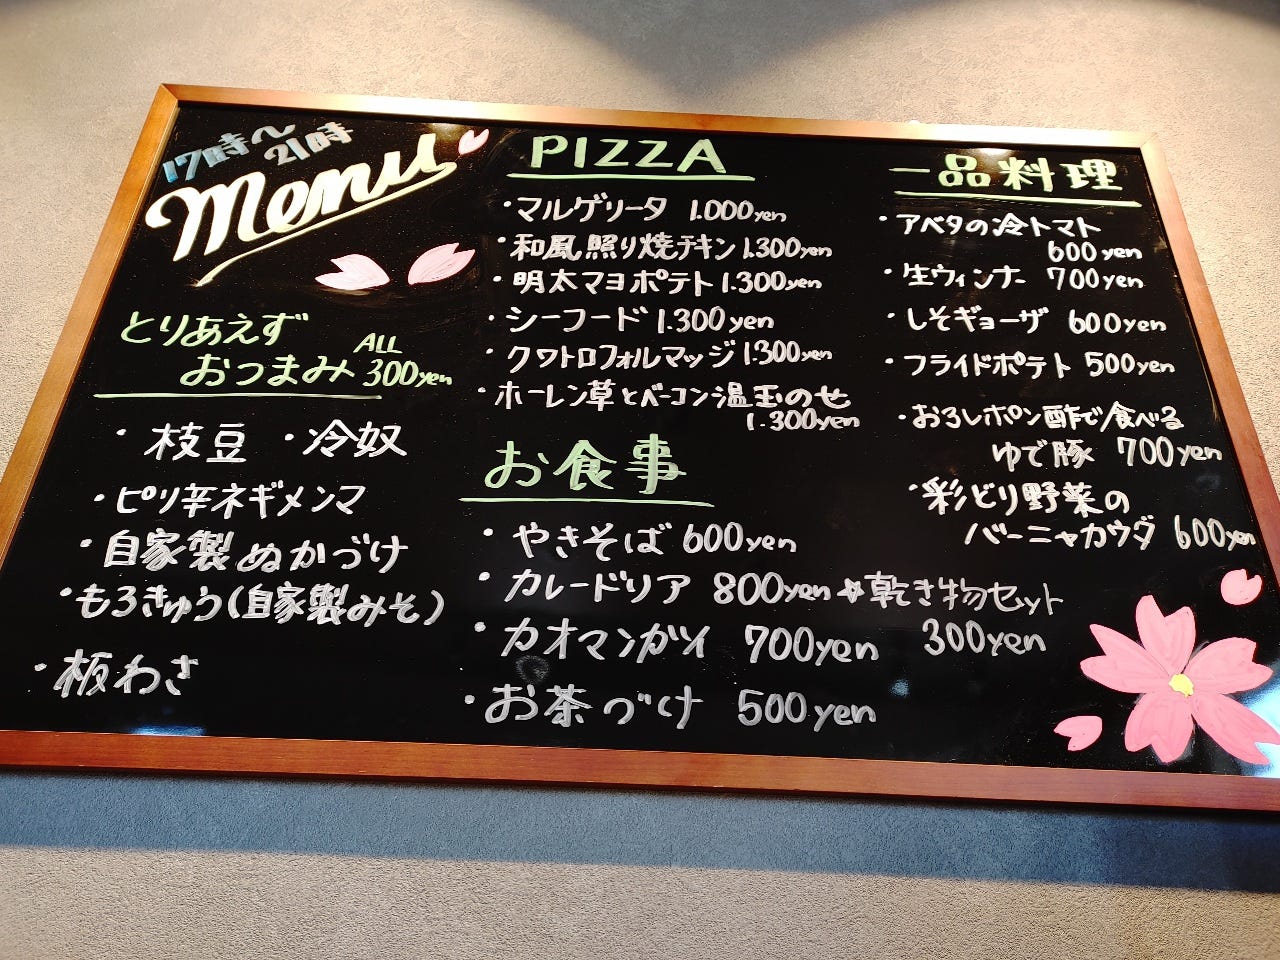 17時〜
21時
Menu
とりあえず
おつまみ ALL
300yen
・枝豆 ・冷奴
・ピリ辛ネギメンマ
・自家製ぬかづけ
・もろきゅう(自家製みそ)
・板わさ
PIZZA
・マルゲリータ 1.000yen
・和風照り焼チキン 1.300yen
・明太マヨポテト 1.300yen
・シーフード 1.300yen
・クワトロフォルマッジ 1.300yen
・ホーレン草とベーコン温玉のせ
1.300yen
お食事
・やきそば 600yen
・カレードリア 800yen
・カオマンガイ 700yen
・お茶づけ 500yen
一品料理
・アベタの冷トマト
600yen
・生ウィンナー 700yen
・しそギョーザ 600yen
・フライドポテト 500yen
・おろしポン酢で食べる
ゆで豚 700yen
・彩どり野菜の
バーニャカウダ 600yen
☆乾き物セット
300yen